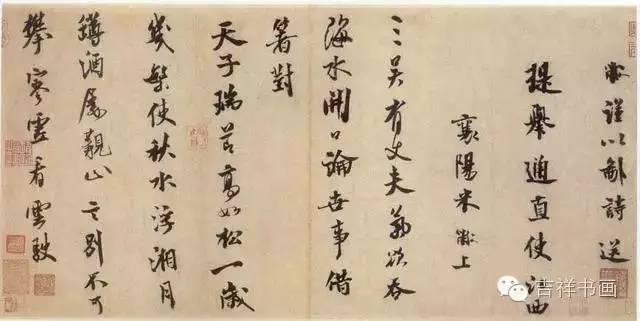 黻謹以鄙詩送
提舉通直使江西
襄陽米黻上
三吳有丈夫氣欲吞
海水開口論世事借
箸對
天子瑞節高如松一歲
幾槃使秋水浮湘月
罇酒屬親言別不可
攀寥雲看雲駛
吉祥书画